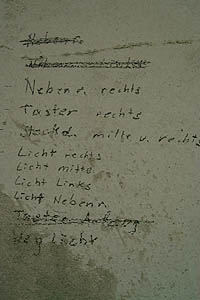 Neben
Neben r. rechts
Taster rechts
Steckd. mitte u. rechts
Licht rechts
Licht mitte
Licht Links
Licht Neben r.
Taster Anbeng
Weg licht